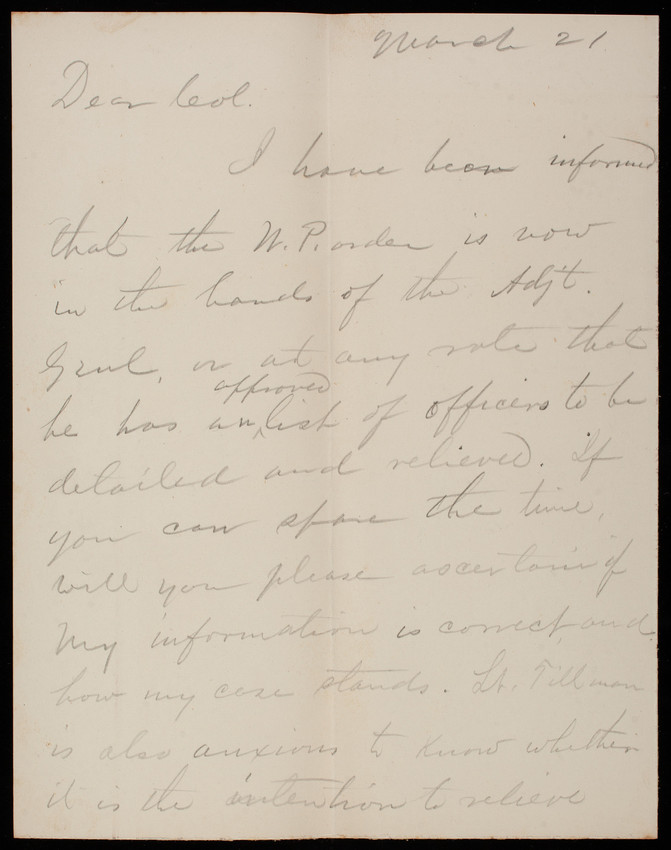 March 21
Dear Col.
I have been informed
that the W.P. order is now
in the hands of the Adj't.
Genl, or at any rate that
approved
he has an list of officers to be
detailed and relieved. If
you can spare the time,
will you please ascertain if
my information is correct, and
how my case stands. Lt. Tillman
is also anxious to know whether
it is the intention to relieve